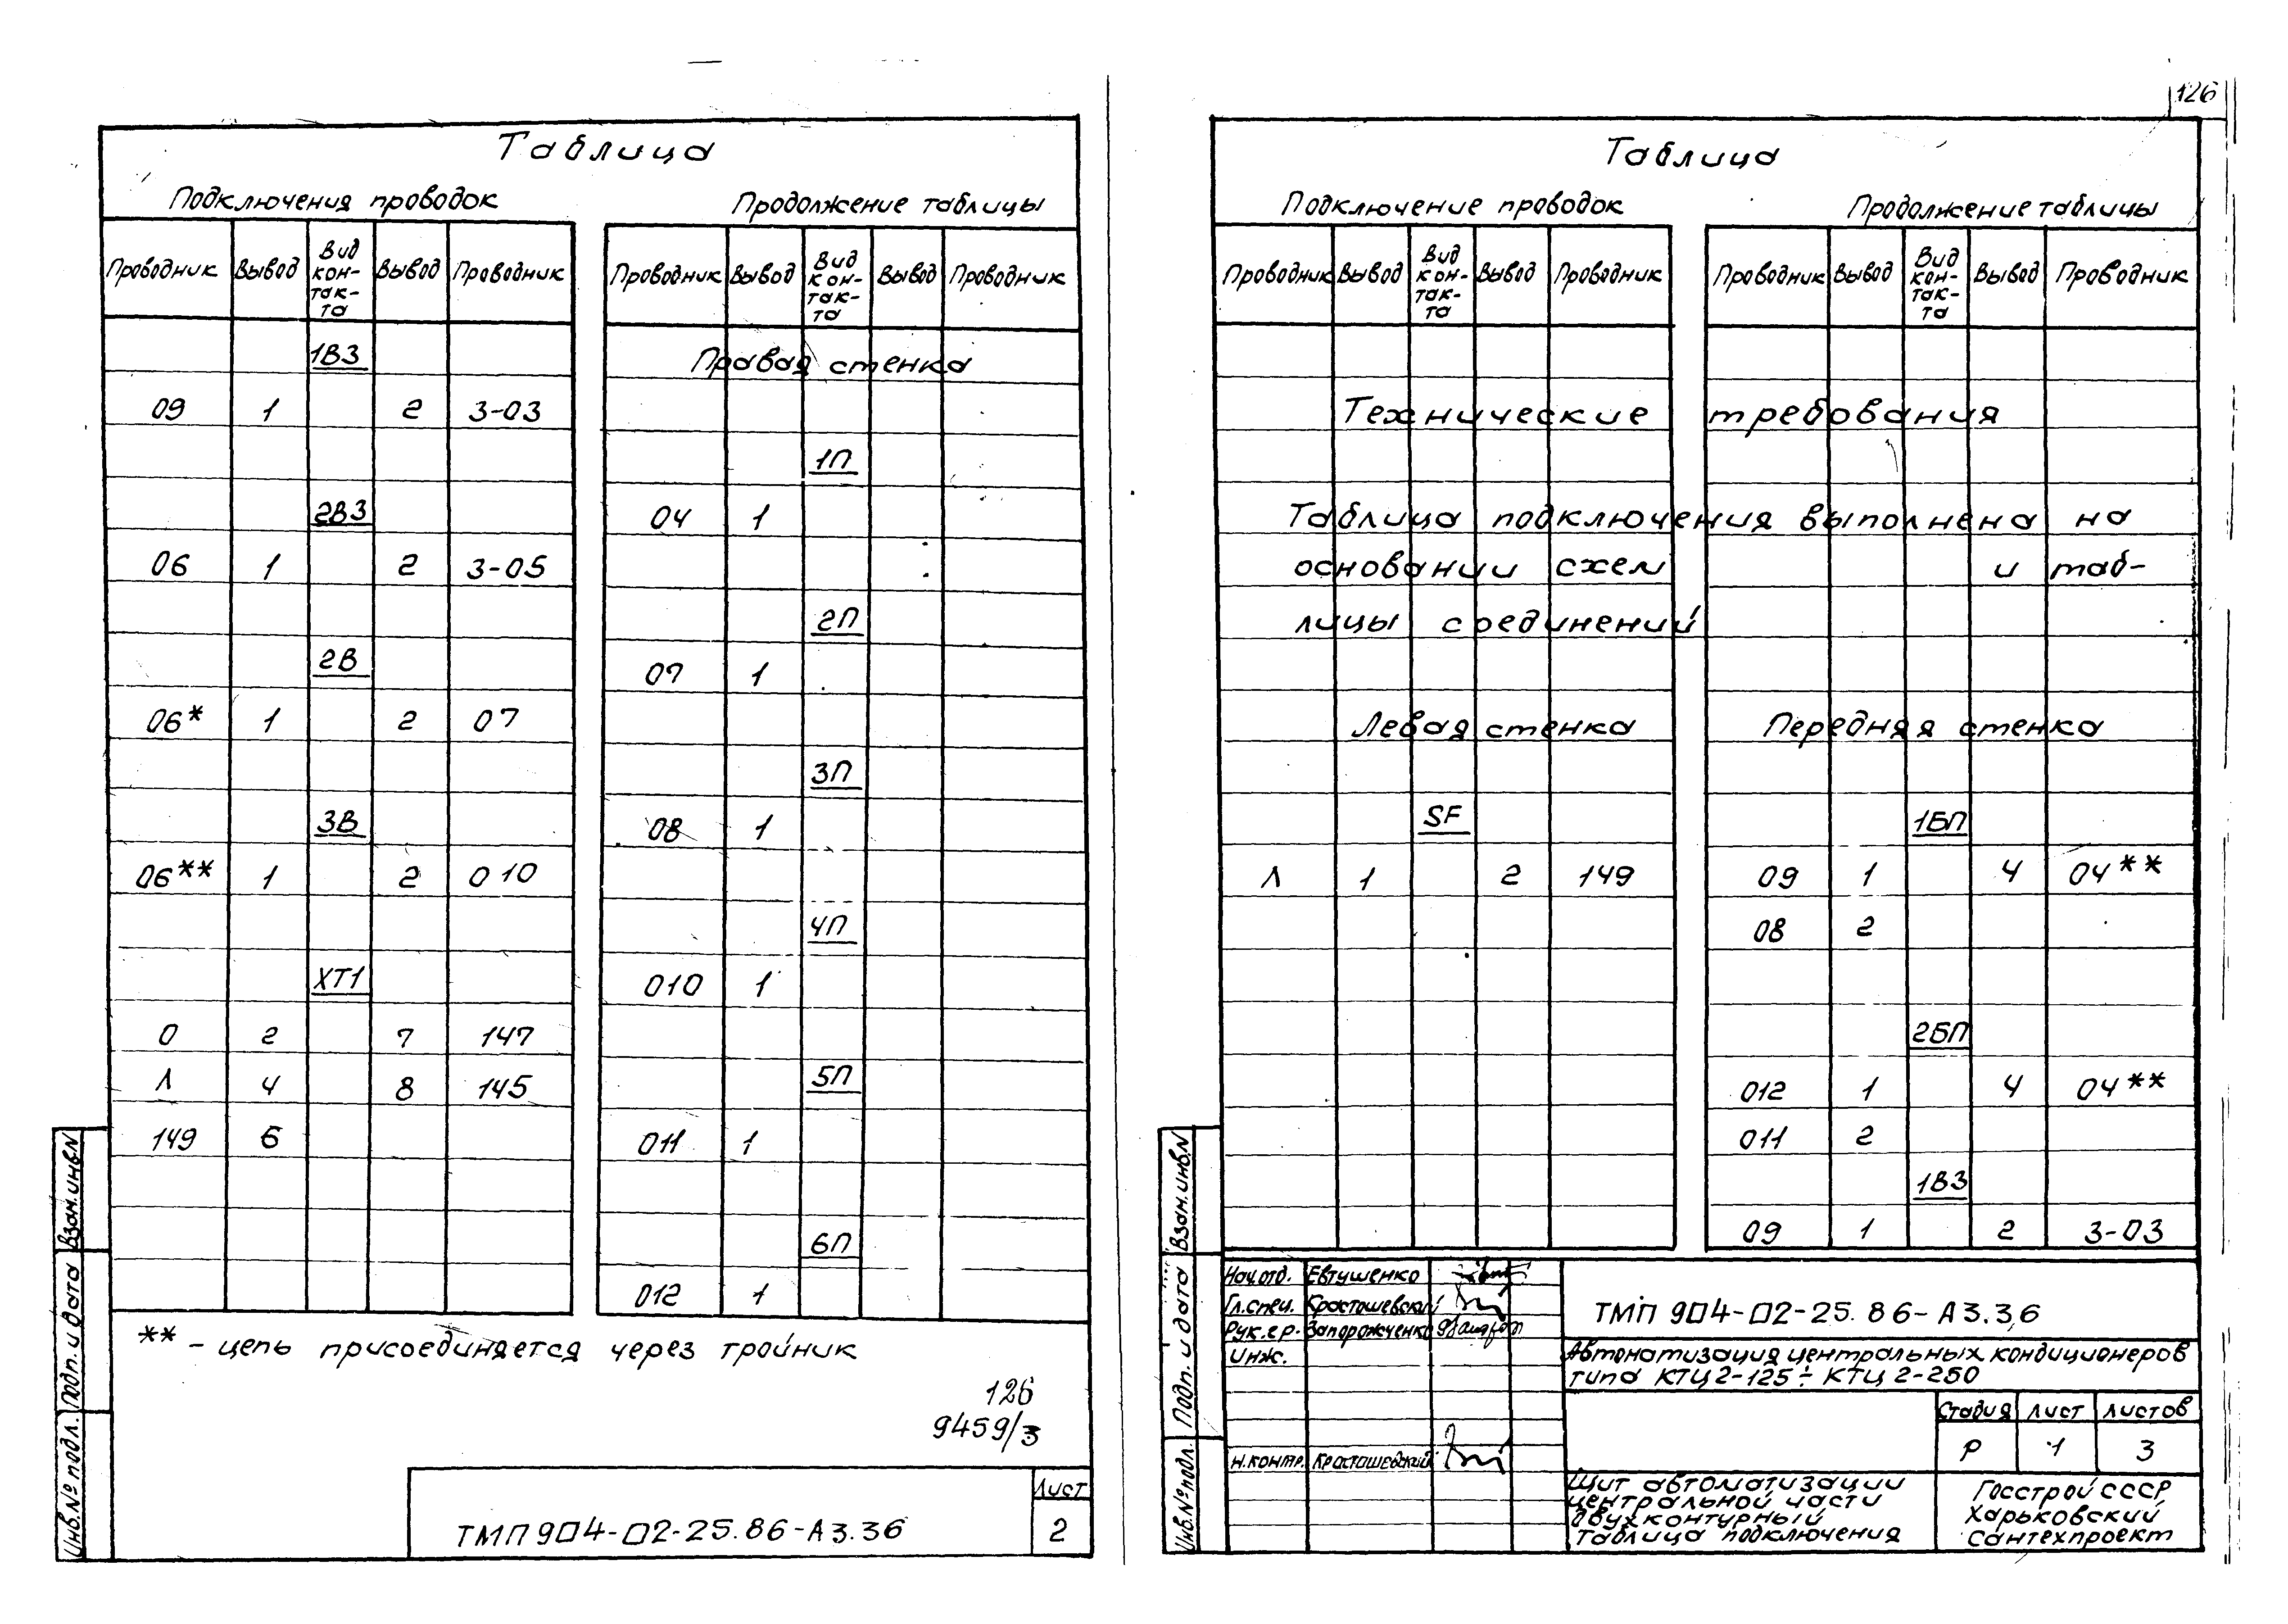 Таблица
Подключения проводок
Проводник Вывод Вид кон- так- та Вывод Проводник
1В3
09 1 2 3-03
2В3
06 1 2 3-05
2В
06* 1 2 07
3В
06** 1 2 010
ХТ1
0 2 7 147
Л 4 8 145
149 6
Продолжение таблицы
Проводник Вывод Вид кон- так- та Вывод Проводник
Правая стенка
1П
04 1
2П
07 1
3П
08 1
4П
010 1
5П
011 1
6П
012 1
** - цепь присоединяется через тройник
126
9459/3
ТМП 904-02-25.86-А3.36
Лист
2
Взам.инв.N
Подп. и дата
Инв.№ подл.
126
Таблица
Подключение проводок
Продолжение таблицы
Проводник Вывод Вид кон- так- та Вывод Проводник
Проводник Вывод Вид кон- так- та Вывод Проводник
Технические требования
Таблица подключения выполнена на
основании схем и таб-
лицы соединений
Левая стенка
SF
Л 1 2 149
Передняя стенка
1БП
09 1 4 04**
08 2
2БП
012 1 4 04**
011 2
1В3
09 1 2 3-03
Взам.инв.N
Подп. и дата
Инв.№ подл.
Нач.отд. Евтушенко
Гл.спец. Красташевский
Рук.гр. Запорожченко
Инж.
Н.контр. Красташевский
ТМП 904-02-25.86-А3.36
Автоматизация центральных кондиционеров
типа КТЦ 2-125÷КТЦ 2-250
Стадия Лист Листов
Р 1 3
Щит автоматизации
центральной части
двухконтурный
Таблица подключения
Госстрой СССР
Харьковский
Сантехпроект